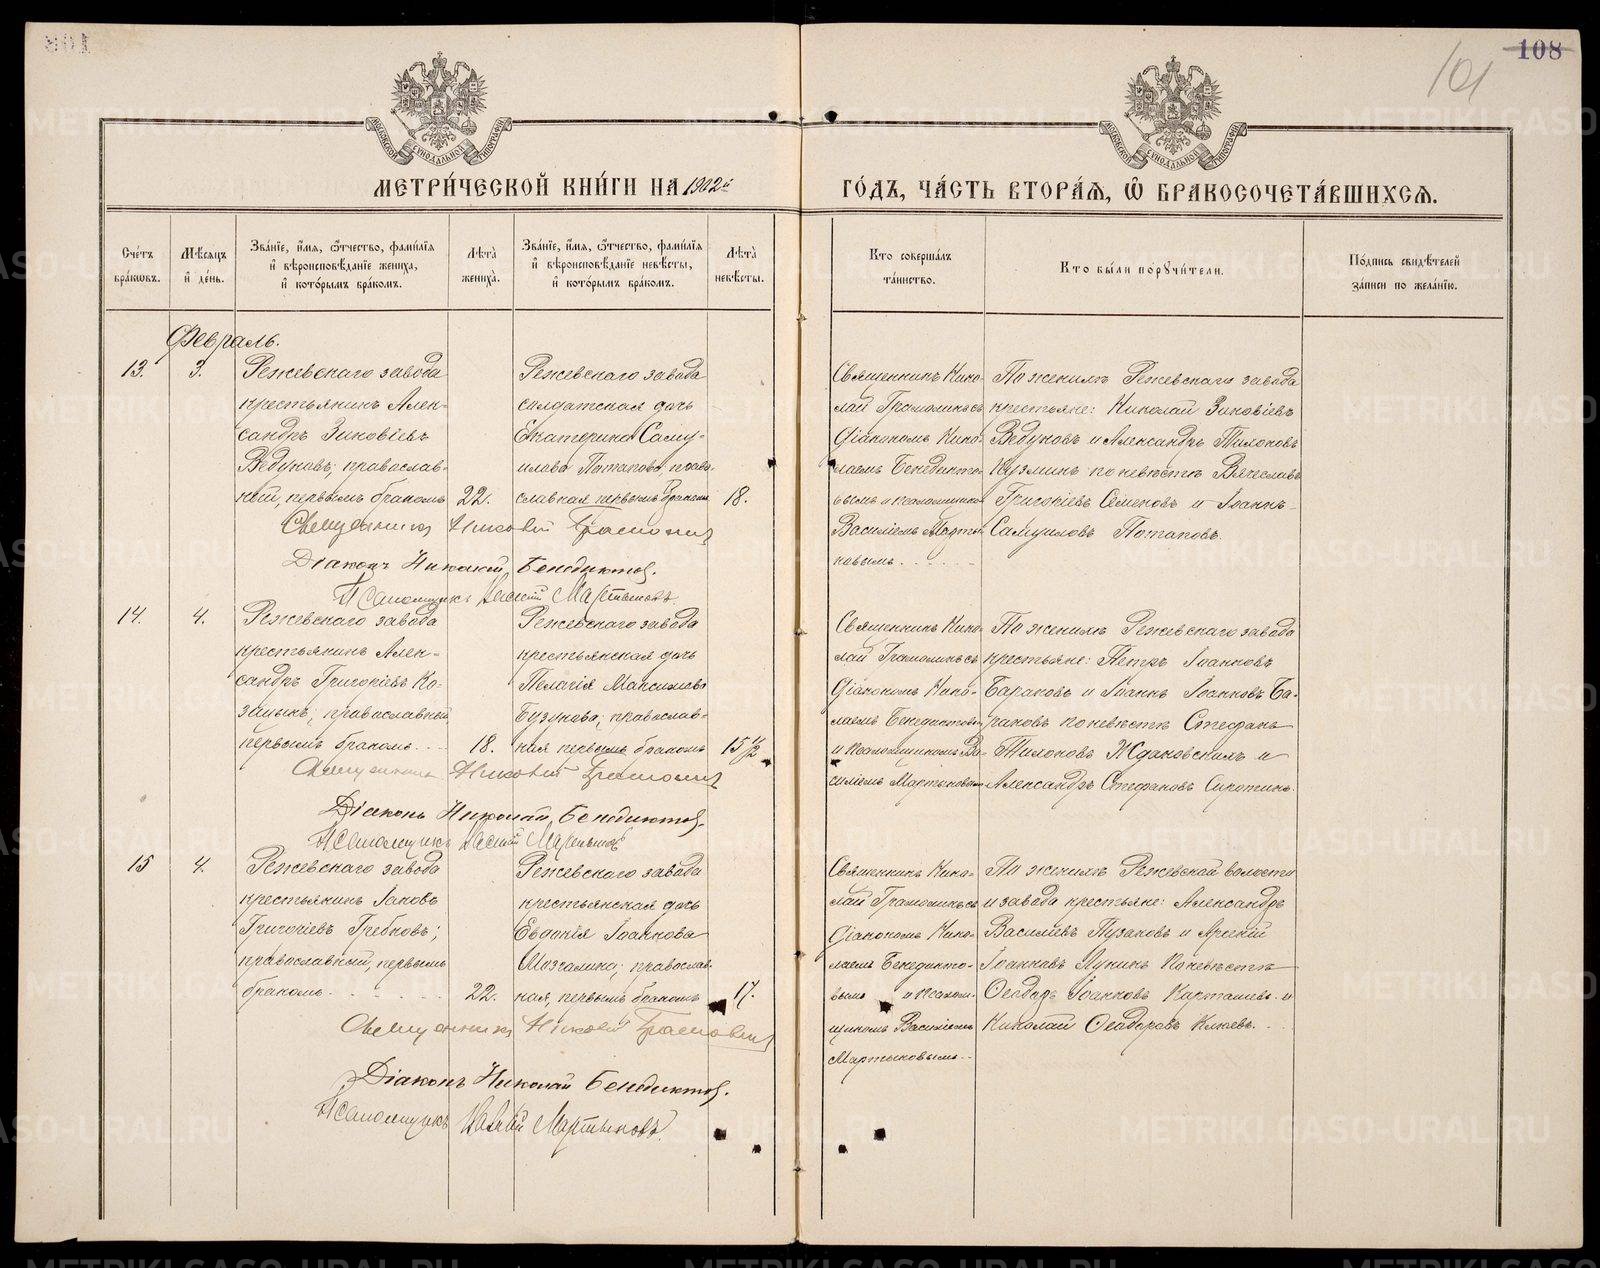 108
101
МЕТРИ́ЧЕСКОЙ КНИ́ГИ НА 1902й ГО́ДЪ, ЧА́СТЬ ВТОРА́Я, Ѿ БРАКОСОЧЕТА́ВШИХСЯ.
Сче́тъ бра́ковъ.
Мѣ́сяцъ и҆ де́нь.
Зва́нїе, и҆́мя, ѻ҆́тчество, фами́лїя и҆ вѣроисповѣ́данїе жениха̀, и҆ кото́рымъ бра́комъ.
Лѣ́та̀ жениха̀.
Зва́нїе, и҆́мя, ѻ҆́тчество, фами́лїя и҆ вѣроисповѣ́данїе невѣ́сты, и҆ кото́рымъ бра́комъ.
Лѣ́та̀ невѣ́сты.
Кто соверша́лъ та́инство.
Кто бы́ли порꙋчи́тели.
По́дпись свидѣ́телей за́писи по жела́нїю.
Февраль.
13.
3.
Режевскаго завода
крестьянинъ Алек-
сандръ Зиновіевъ
Ведуновъ, православ-
ный, первымъ бракомъ
22.
Режевскаго завода
солдатская дочь
Екатерина Саму-
илова Потапова, право-
славная первымъ бракомъ
18.
Священникъ Нико-
лай Грамолинъ съ
діакономъ Нико-
лаемъ Бенедикто-
вымъ и псаломщикомъ
Василіемъ Марты-
новымъ.
По женихѣ Режевскаго завода
крестьяне: Николай Зиновіевъ
Ведуновъ и Александръ Тихоновъ
Кузминъ по невѣстѣ Вячеславъ
Григоріевъ Семеновъ и Іоаннъ
Самуиловъ Потаповъ.
Священникъ Николай Грамолинъ
Діаконъ Николай Бенедиктовъ.
Псаломщикъ Василій Мартыновъ
14.
4.
Режевскаго завода
крестьянинъ Алек-
сандръ Григоріевъ Ко-
зицынъ; православный
первымъ бракомъ
18.
Режевскаго завода
крестьянская дочь
Пелагія Максимова
Бузунова, православ-
ная первымъ бракомъ
15 1/2
Священникъ Нико-
лай Грамолинъ съ
діакономъ Нико-
лаемъ Бенедиктовы
и псаломщикомъ Ва-
силіемъ Мартыновымъ
По женихѣ Режевскаго завода
крестьяне: Петръ Іоанновъ
Барановъ и Іоаннъ Іоанновъ Ба-
рановъ по невѣстѣ Стефанъ
Тихоновъ Ждановскихъ и
Александръ Стефановъ Сукотинъ.
Священникъ Николай Грамолинъ
Діаконъ Николай Бенедиктовъ.
Псаломщикъ Василій Мартыновъ
15
4.
Режевскаго завода
крестьянинъ Іаковъ
Григоріевъ Гребновъ;
православный, первымъ
бракомъ
22.
Режевскаго завода
крестьянская дочь
Евдокія Іоаннова
Мозгалина; православ-
ная, первымъ бракомъ
17.
Священникъ Нико-
лай Грамолинъ съ
діакономъ Нико-
лаемъ Бенедикто-
вымъ и псалом-
щикомъ Василіемъ
Мартыновымъ
По женихѣ Режевской волости
и завода крестьяне: Александръ
Василіевъ Пузановъ и Арсеній
Іоанновъ Лукинъ По невѣстѣ
Ѳеодоръ Іоанновъ Карташевъ и
Николай Ѳеодоровъ Клюевъ.
Священникъ Николай Грамолинъ
Діаконъ Николай Бенедиктовъ.
Псаломщикъ Василій Мартыновъ.
METRIKI.GASO-URAL.RU